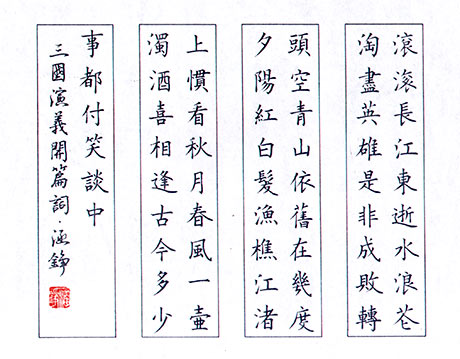 滾滾長江東逝水浪花
淘盡英雄是非成敗轉
頭空青山依舊在幾度
夕陽紅白髮漁樵江渚
上慣看秋月春風一壺
濁酒喜相逢古今多少
事都付笑談中
三國演義開篇詞·涵錚